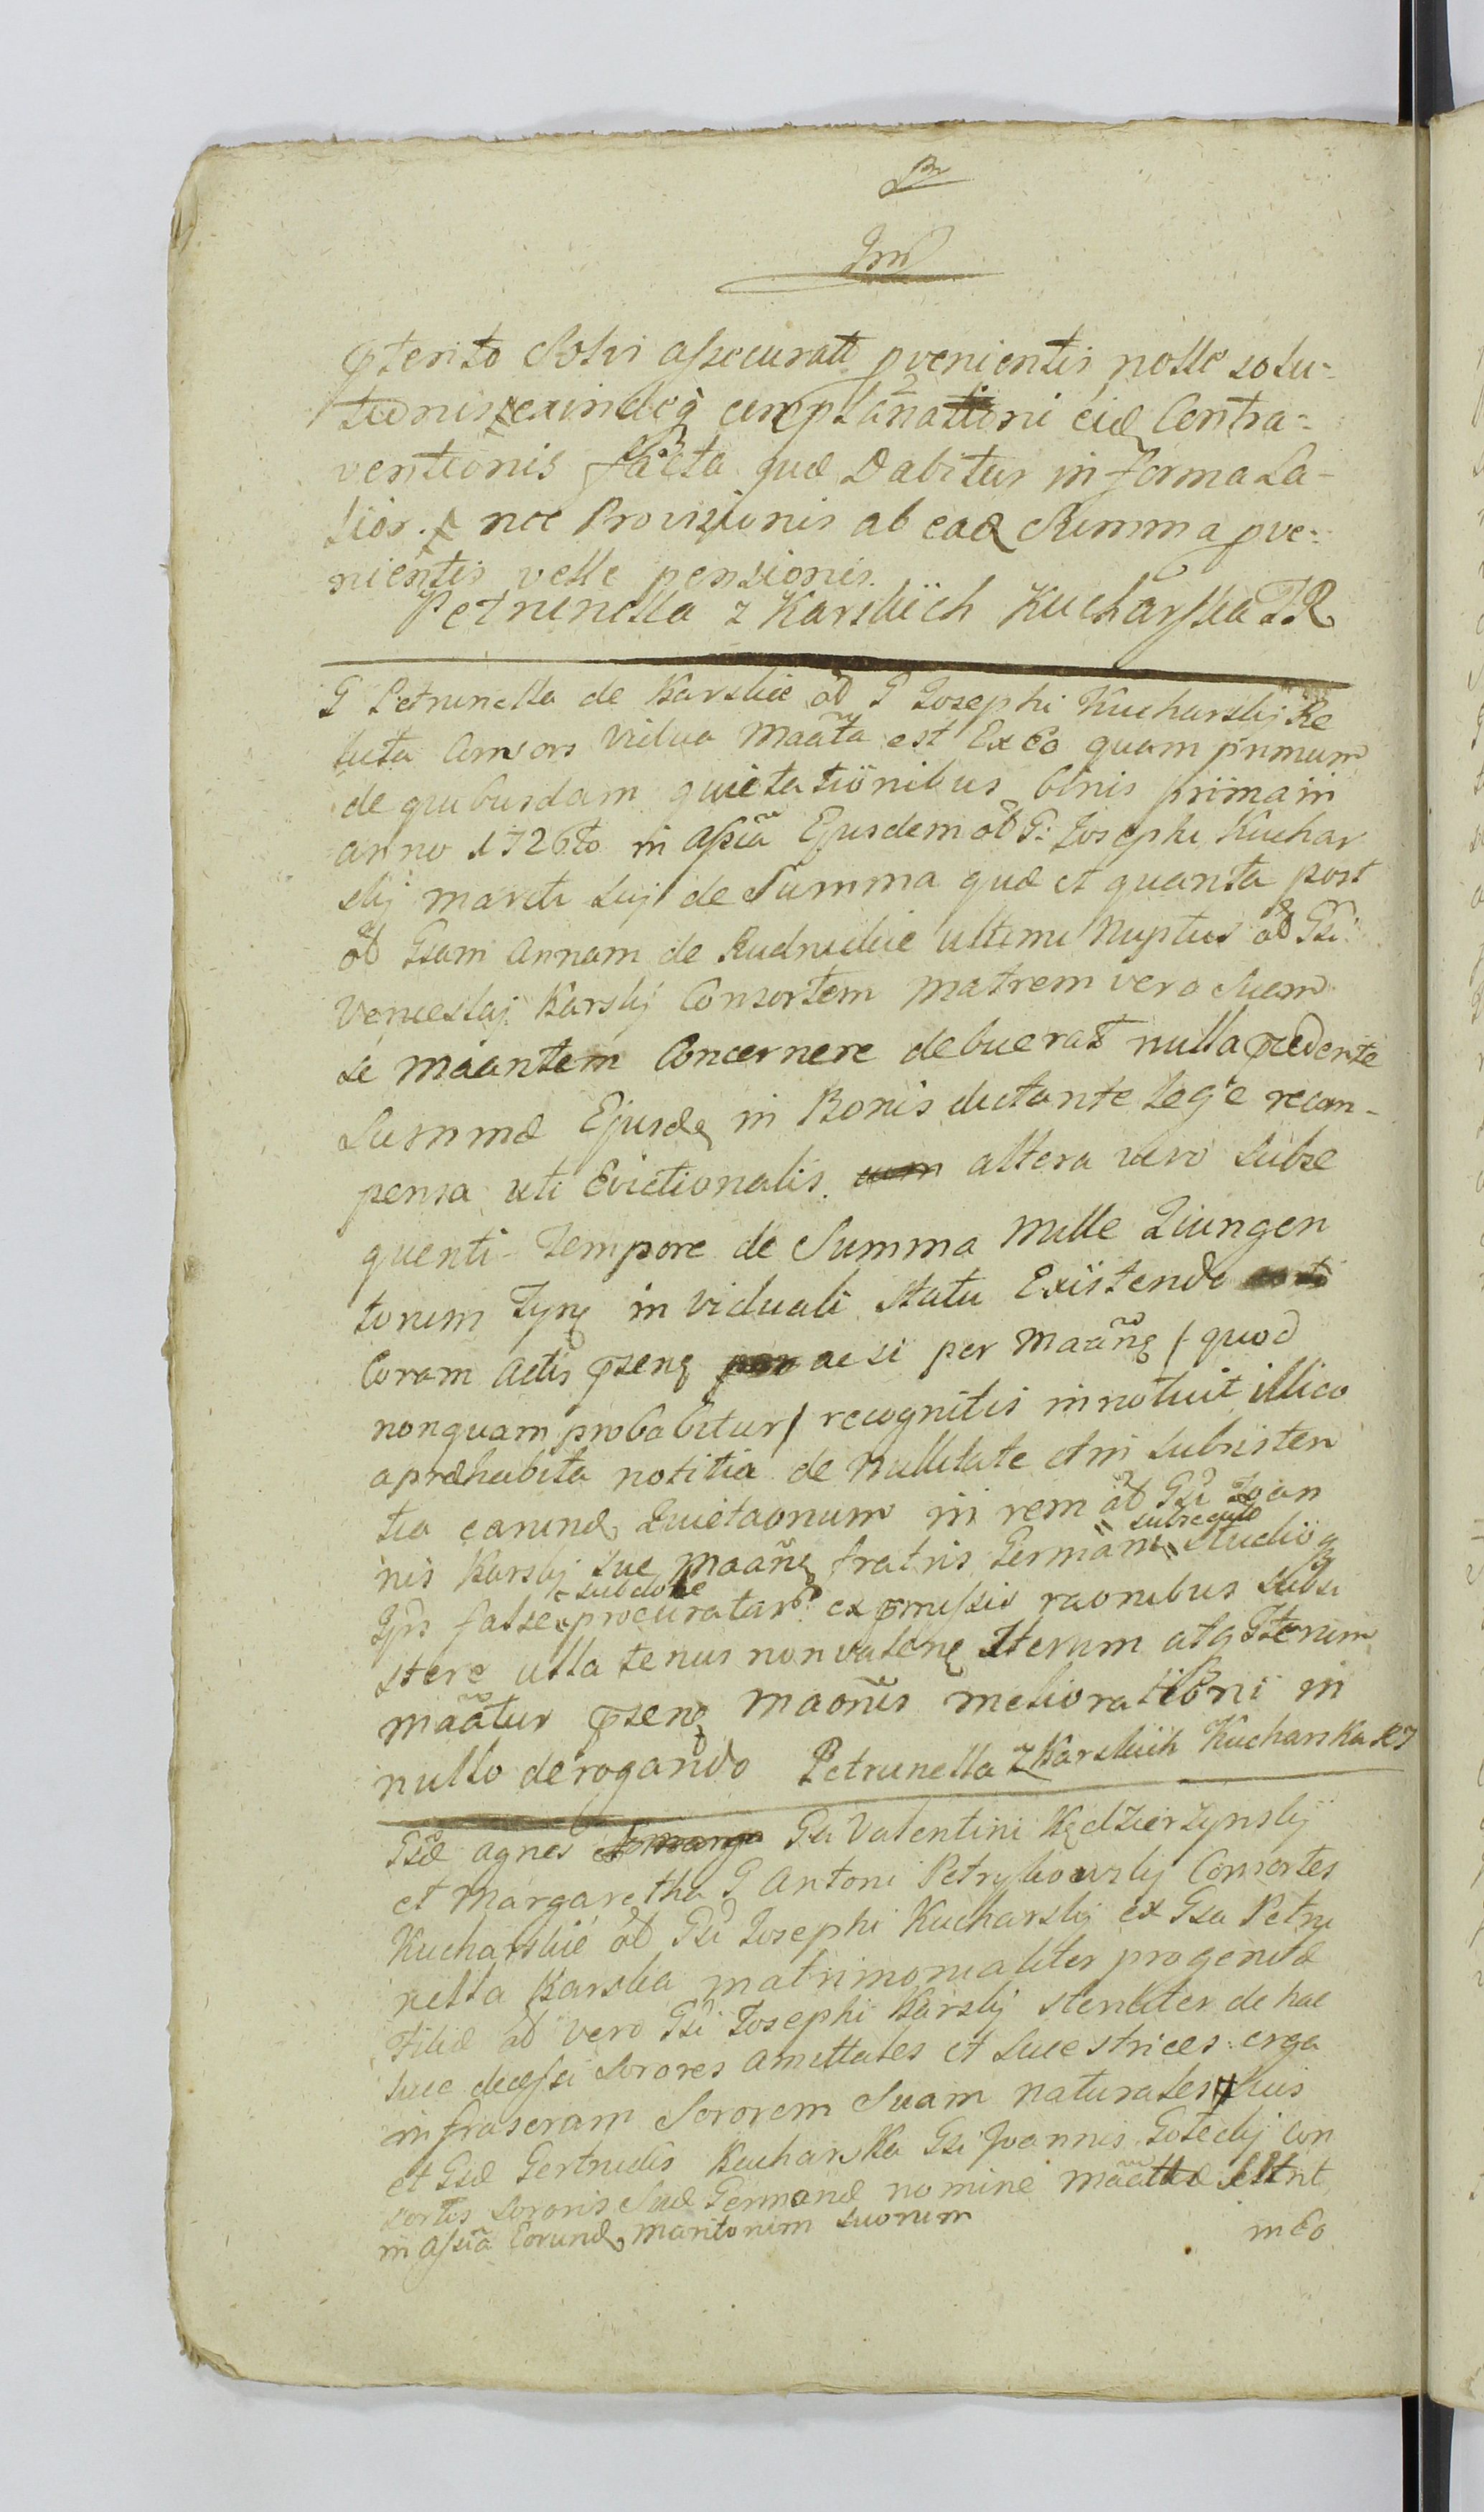 Jm
pterito Solvi assecurati pvenientis nolle solu-
tionis exindeq complanationi eid Contra-
ventionis facta quæ Dabitur in forma La-
tior. nec Provizionis ab ead Summa pve-
nientis velle pensionis.
Petrunella z Karskich Kucharska
G Petrunella de Karskie ōl G Josephi Kucharskij Re
licta Consors Vidua Maata est Ex Eo quam primum
de quibusdam quietationibus binis prima in
anno 1726to in assia Ejusdem ōl G: Josephi Kuchar
skij mariti Suj de Summa quæ et quanta post
ōl Gsam Annam de Rudnickie ultimi Nuptus ōl Gsi
Venceslaj Karskij Consortem matrem vero Suam
se maantem Concernere debuerat nulla
Summæ Ejusd in Bonis dictante Lege recom-
pensa uti Evictionalis altera vero Subse
quenti Tempore de Summa Mille Quingen
torum in viduali Statu Existendo
Coram Actis pseng ac si per Maang / quod
nonquam probabitur / recognitis innotuit illico
apræhabita notitia de Nullitate et in subsisten
tia earund Quietaonum in rem ōl Gsi Joan
nis Karskij Suæ Maang fratris Germani Studio
subdole
Ipsi false procuratar ex pmissis raonibus Subsi
stere ulla tenus non valeng Iterum atq Iterum
maatur pseng Maonis meliorationi in
nullo derogando Petrunella z Karskich Kucharska
Gsæ Agnes Gsi Valentini Kędzierzynskij
et Margaretha G Antoni Petrykowskij Consortes
Kucharskie ōl Gsi Josephi Kucharskij ex Gsa Petru
nella Karska matrimonialiter progenitæ
Filiæ ōl vero Gsi Josephi Karskij steriliter de hac
luce decessi Sorores Amittales et Sucestrices erga
infrascram Sororem Suam naturales Suis
et Gsæ Gertrudis Kucharska Gsi Joannis Goteckij Con
sortis Sororis Suæ Germanæ nomine Maatæ Sunt
in assia Eorund Maritorum Suorum
in Eo